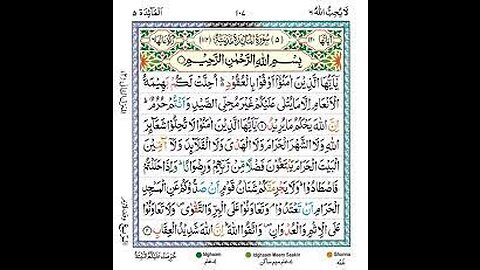 لَا يُحِبُّ اللّٰهُ ٦
١٠٧
اَلْمَآئِدَة ٥
(٥) سُوْرَةُ الْمَآئِدَةِ مَدَنِيَّةٌ (١١٢)
بِسْمِ اللّٰهِ الرَّحْمٰنِ الرَّحِيْمِ
يٰۤاَيُّهَا الَّذِيْنَ اٰمَنُوْۤا اَوْفُوْا بِالْعُقُوْدِ ؕ اُحِلَّتْ لَكُمْ بَهِيْمَةُ
الْاَنْعَامِ اِلَّا مَا يُتْلٰى عَلَيْكُمْ غَيْرَ مُحِلِّى الصَّيْدِ وَاَنْتُمْ حُرُمٌ ؕ
اِنَّ اللّٰهَ يَحْكُمُ مَا يُرِيْدُ ۞ يٰۤاَيُّهَا الَّذِيْنَ اٰمَنُوْا لَا تُحِلُّوْا شَعَآئِرَ
اللّٰهِ وَلَا الشَّهْرَ الْحَرَامَ وَلَا الْهَدْىَ وَلَا الْقَلَآئِدَ وَلَاۤ آٰمِّيْنَ
الْبَيْتَ الْحَرَامَ يَبْتَغُوْنَ فَضْلًا مِّنْ رَّبِّهِمْ وَرِضْوَانًا ؕ وَاِذَا حَلَلْتُمْ
فَاصْطَادُوْا ؕ وَلَا يَجْرِمَنَّكُمْ شَنَاٰنُ قَوْمٍ اَنْ صَدُّوْكُمْ عَنِ الْمَسْجِدِ
الْحَرَامِ اَنْ تَعْتَدُوْا ۘ وَتَعَاوَنُوْا عَلَى الْبِرِّ وَالتَّقْوٰى ۪ وَلَا تَعَاوَنُوْا
عَلَى الْاِثْمِ وَالْعُدْوَانِ ۪ وَاتَّقُوا اللّٰهَ ؕ اِنَّ اللّٰهَ شَدِيْدُ الْعِقَابِ ۞
Idghaam Meem Saakin